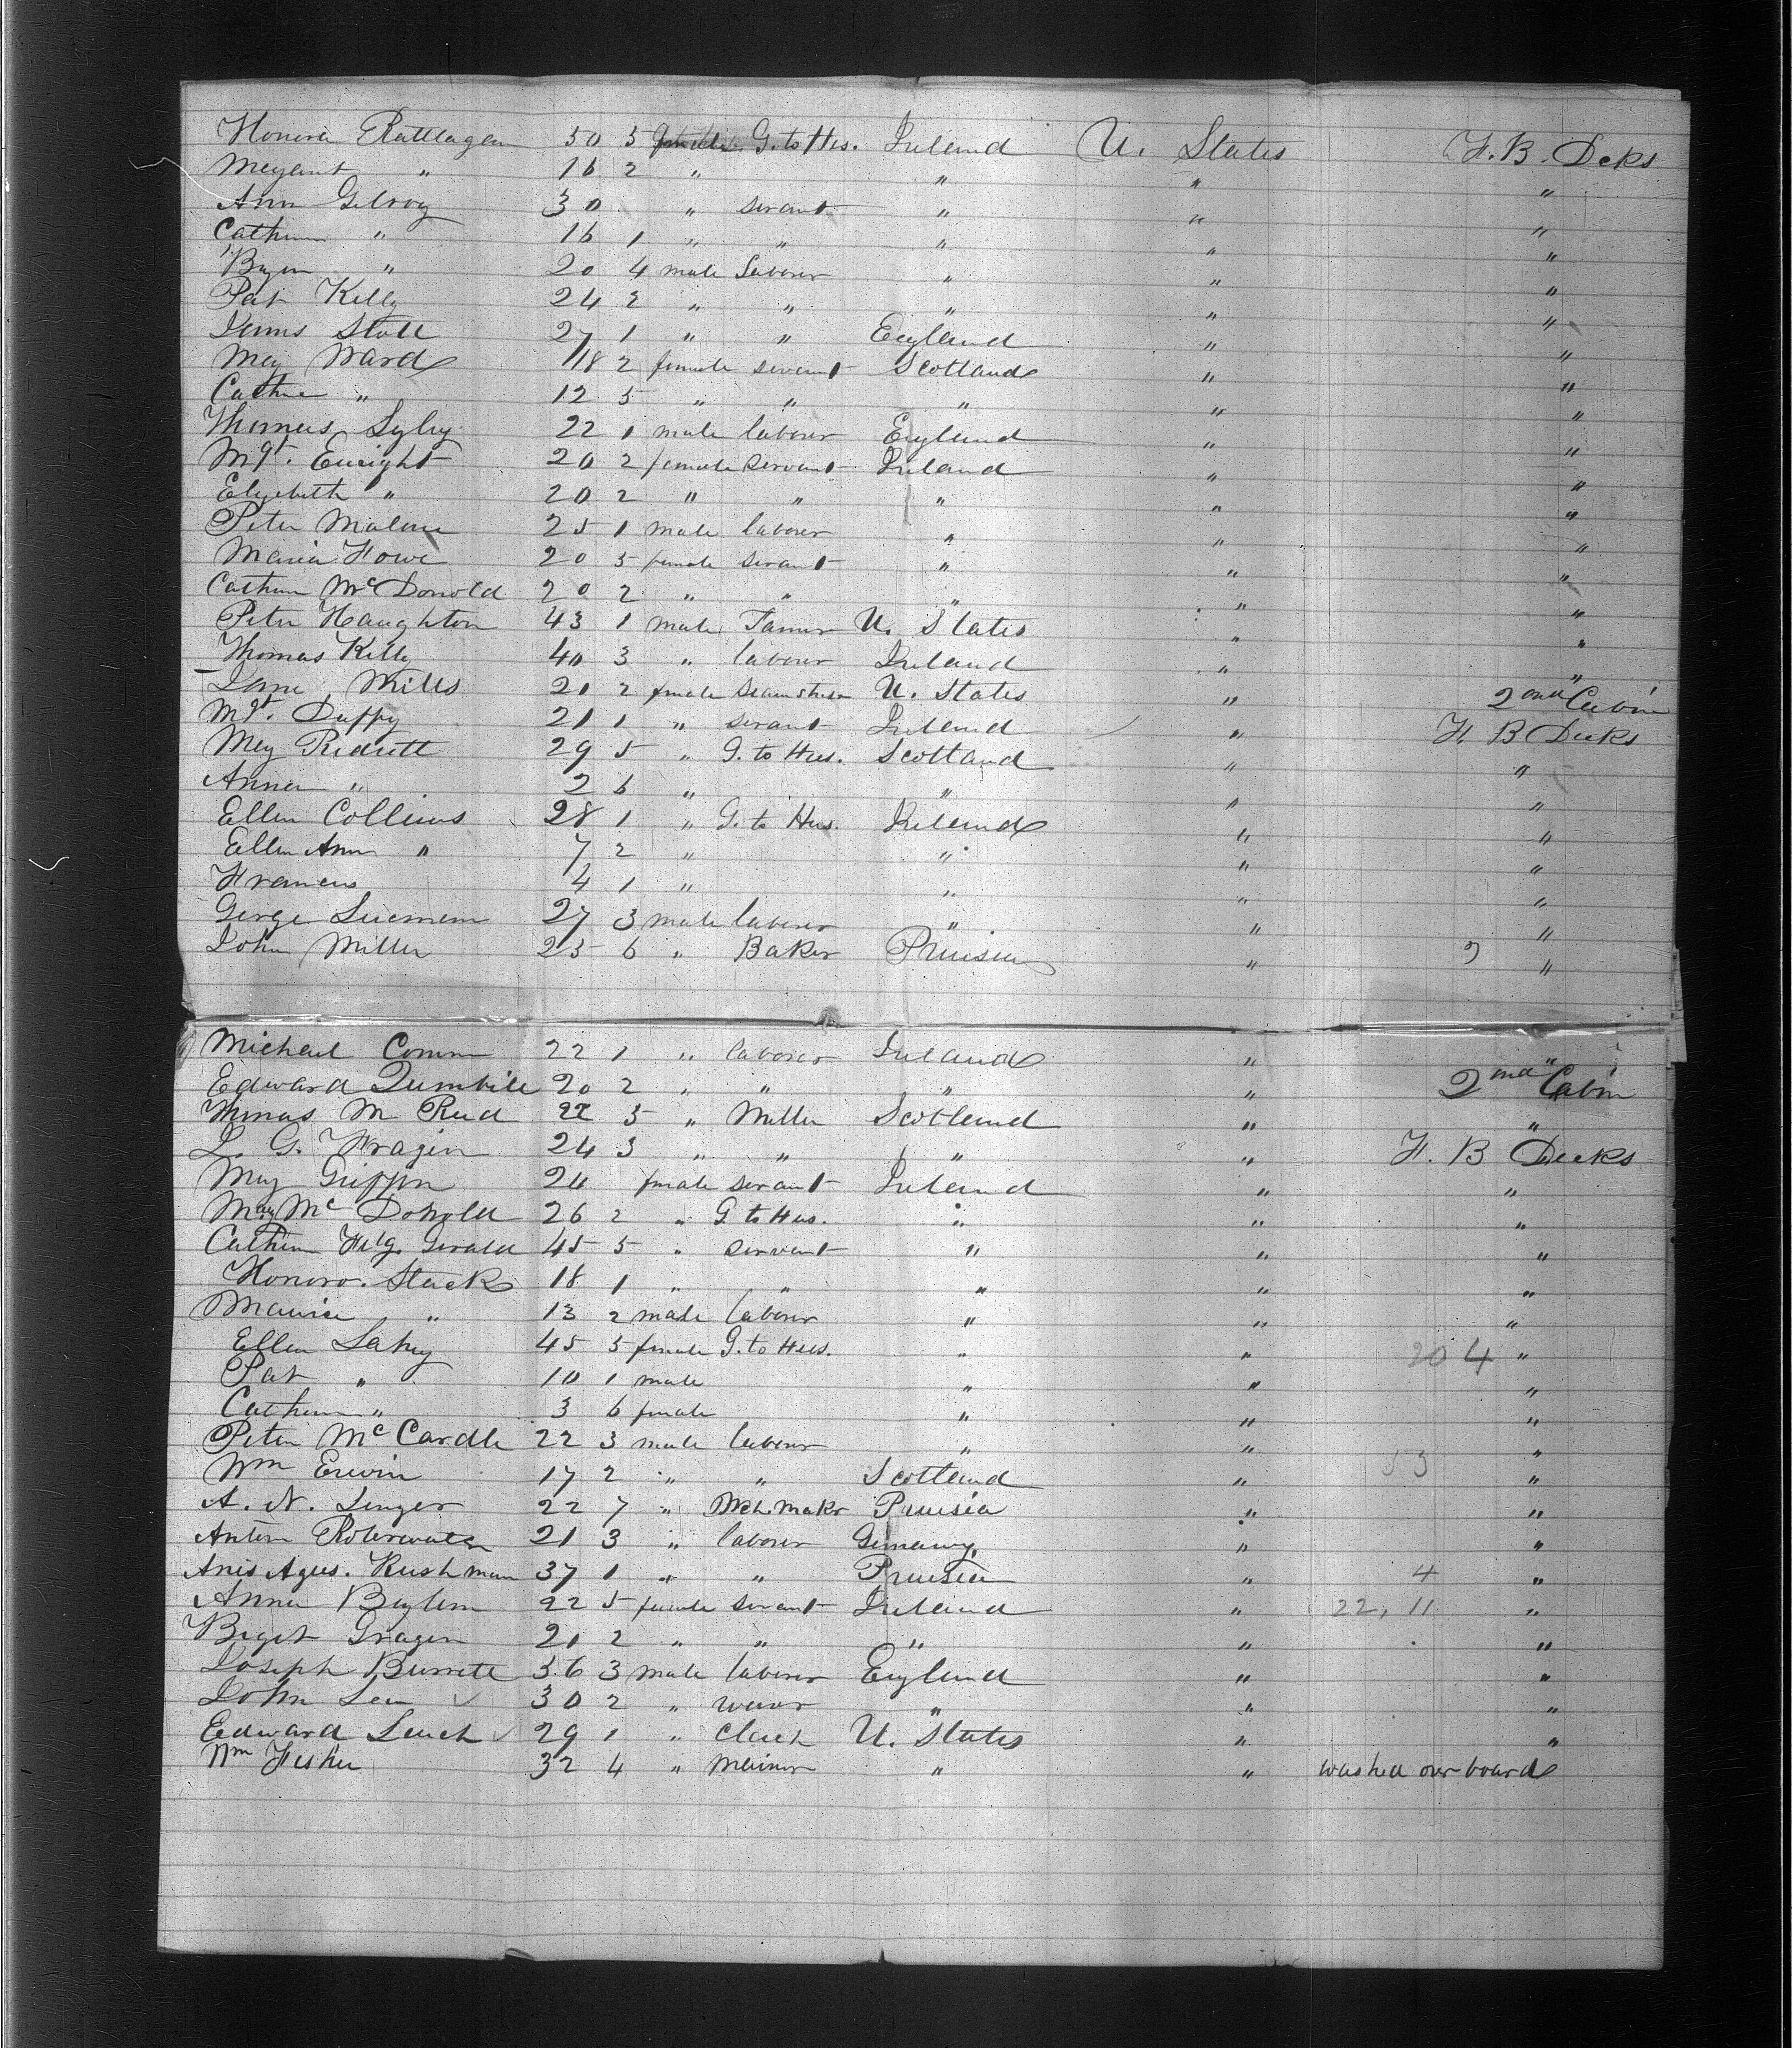 Honora Rattlagan 50 5 female G. to Hus. Ireland U. States F. B. Deks
Megant " 16 2 " " " "
Ann Gilroy 30 " servant " " "
Cathrin " 16 1 " " " " "
Bryan " 20 4 male laborer " " "
Pat Kelly 24 2 " " " " "
James Stott 27 1 " " England " "
May Ward 18 2 female servant Scotland " "
Cathrie " 12 5 " " " " "
Thomas 22 1 male laborer England " "
Mgt. Enright 20 2 female servant Ireland " "
Elizebeth " 20 2 " " " " "
Peter Malone 25 1 male laborer " " "
Maria Howe 20 5 female servant " " "
Cathrin McDonold 20 2 " " " " "
Peter Haughton 43 1 male Tanner U. States " "
Thomas Kelly 40 3 " laborer Ireland " "
Jane Mills 21 2 female seamstress U. States " 2nd Cabin
Mgt. Duffy 21 1 " servant Ireland " F. B Decks
May 29 5 " G. to Hus. Scotland " "
Anna " 2 6 " " " "
Ellen Collins 28 1 " G. to Hus. Ireland " "
Ellen Ann " 7 2 " " " "
Frances 4 1 " " " "
Gerge 27 3 male laborer " " "
John Miller 25 6 " Baker Prussia " "
Michael Comm 22 1 " laborer Ireland " "
Edward 20 2 " " " " 2nd Cabin
Thomas M Reid 22 5 " Miller Scotland " "
J. G. Fragen 24 3 " " " " F. B Decks
May Griffin 24 female servant Ireland " "
May Mc Donold 26 2 " G. to Hus. " " "
Cathrin Fitz Gerald 45 5 " servant " " "
Honora Stack 18 1 " " " " "
Maurice " 13 2 male laborer " " "
Ellen Lahey 45 5 female G. to Hus. " " 20 4 "
Pat " 10 1 male " " "
Cathrin " 3 6 female " " "
Peter McCardle 22 3 male laborer " " "
Wm Erwin 17 2 " " Scotland " 53 "
A. N. Linger 22 7 " Wch. Makr Prussia " "
Anton 21 3 " laborer Germany " "
Anis Agus. Kushman 37 1 " " Prussia " 4 "
Anna 22 5 female servant Ireland " 22, 11 "
Beget Gragen 21 2 " " " " "
Joseph Burrett 36 3 male laborer England " "
John Lea 30 2 " wever " " "
Edward Leach 29 1 " Clark U. States " "
Wm Fisher 32 4 " Mariner " " washed over board